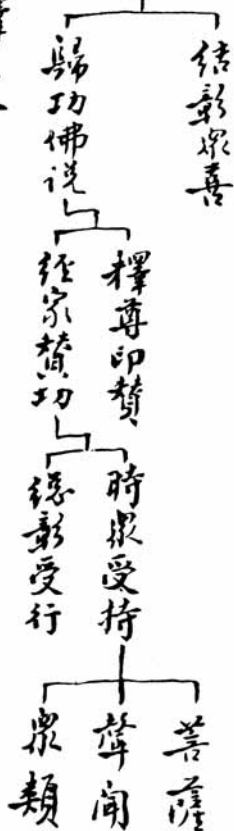 結彰衆喜
歸功佛说
擇尊印賛
經家賛功
時衆受持
總彰受行
菩薩
聲聞
衆類